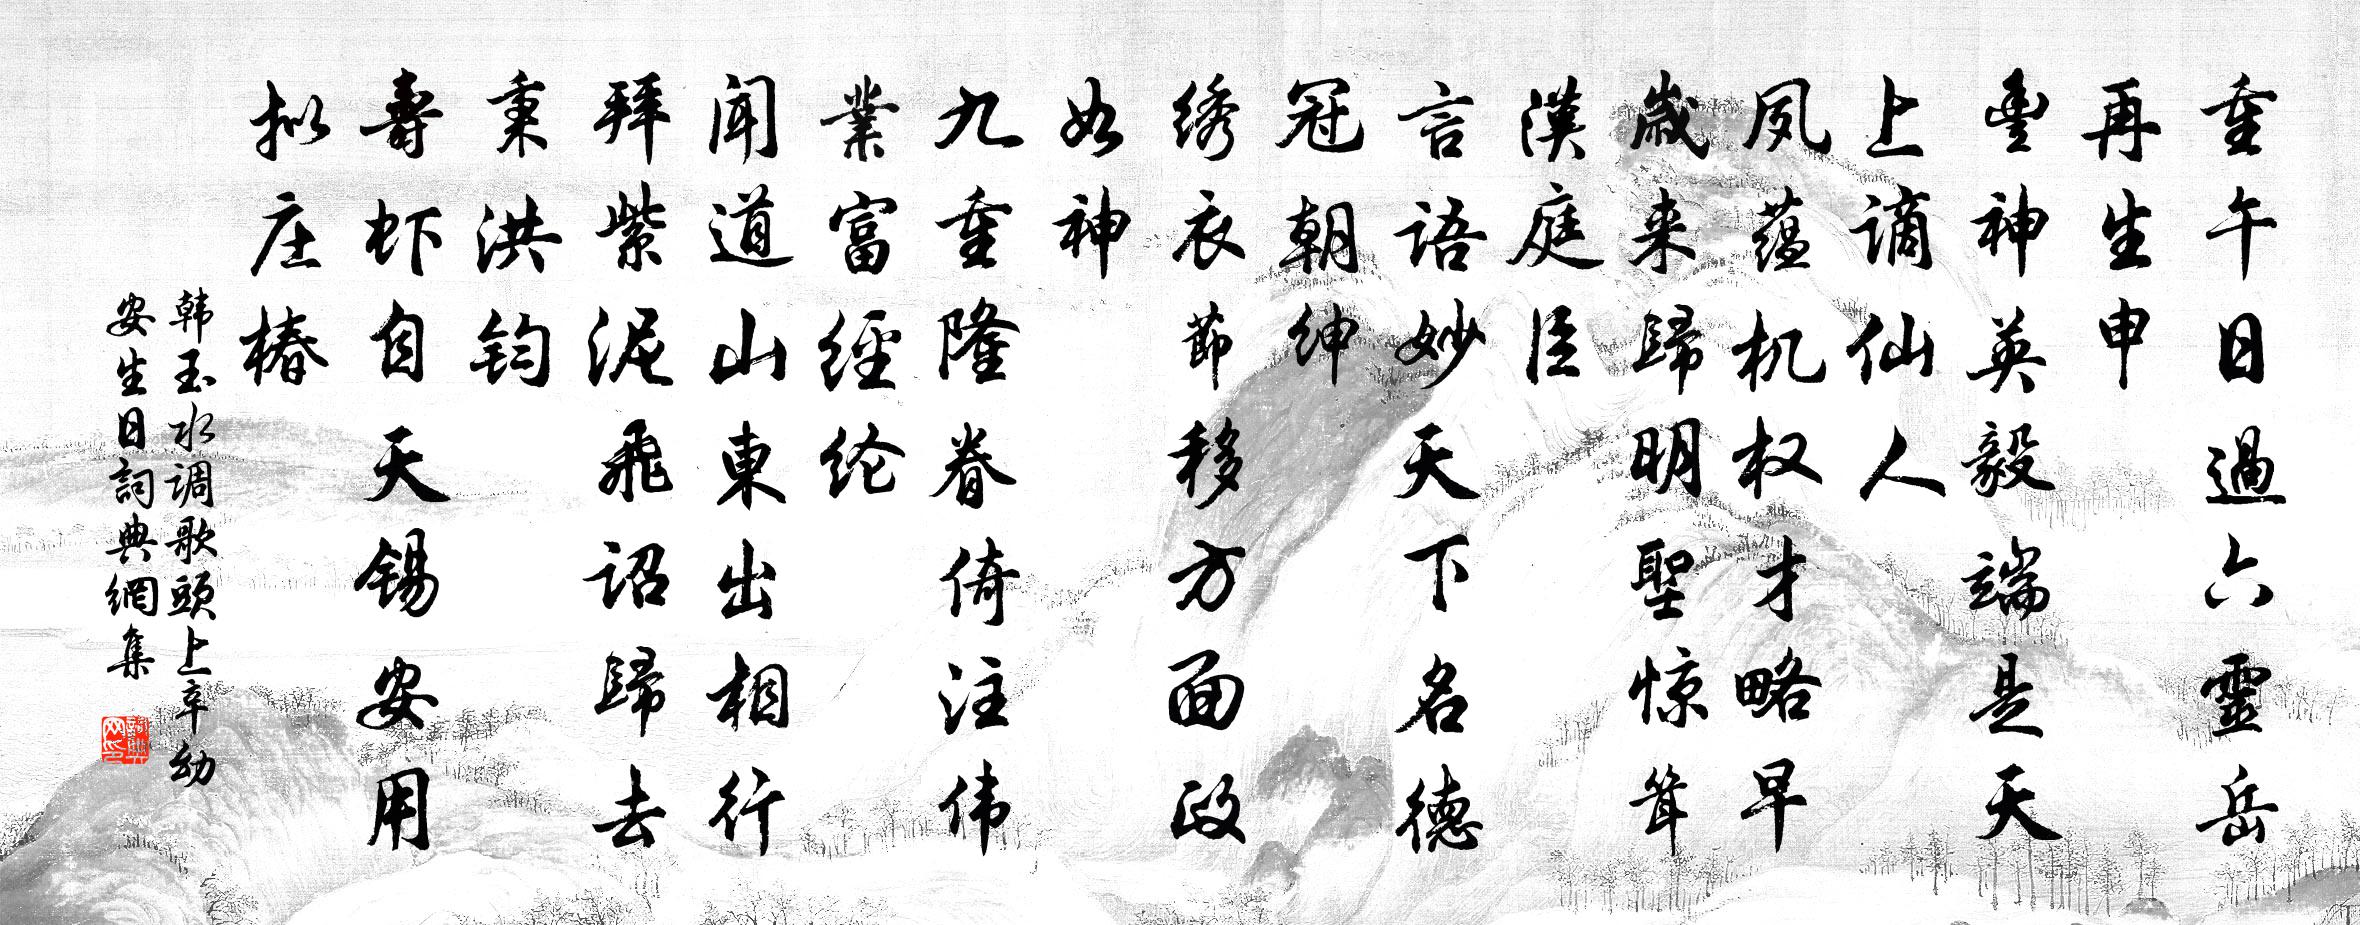 重午日過六靈岳
再生申
豊神英毅端是天
上谪仙人
夙蕴机权才略早
歲来歸明聖惊耸
漢庭臣
言語妙天下名德
冠朝绅
绣衣節移方面政
如神
九重隆眷倚注伟
業富經纶
闻道山東出相行
拜紫泥飛诏歸去
秉洪钧
壽虾自天锡安用
拟庄椿
韩玉水调歌頭上辛幼
安生日詞典網集
詞典网印